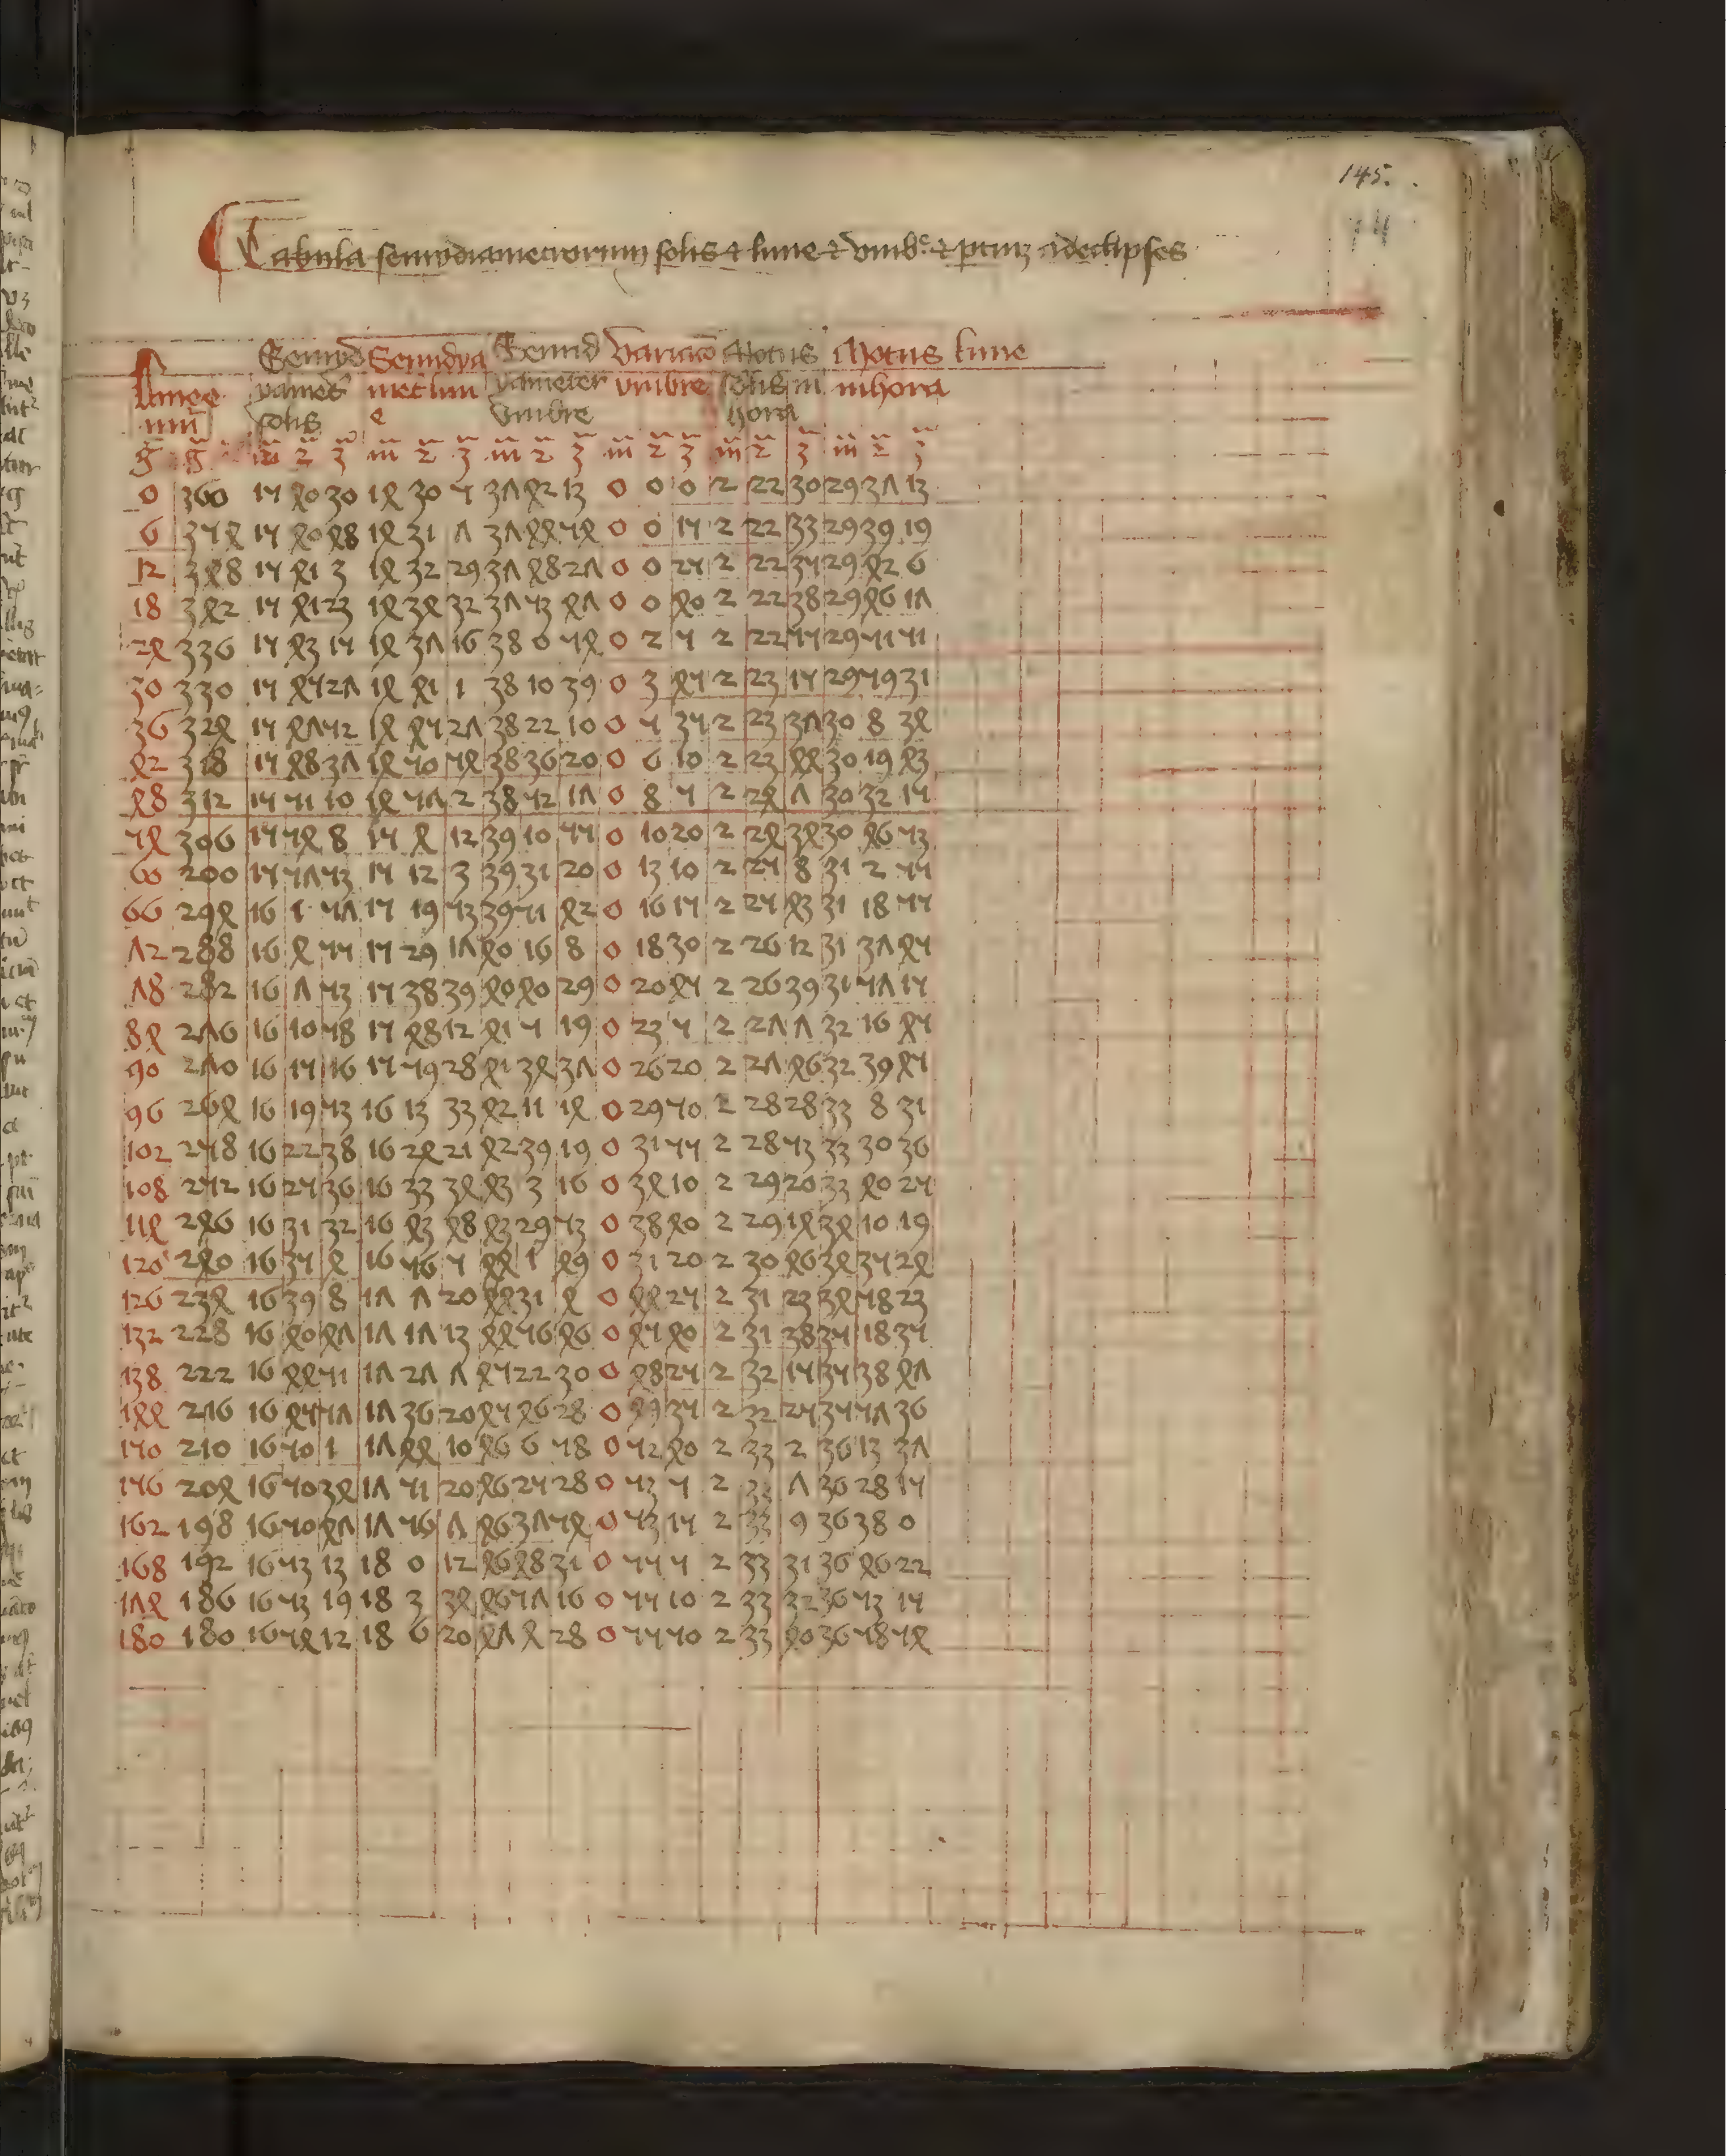 145.
Tabula semidiametrorum solis et lune et umbre et ptium ad eclipses
Semid Semidya Semid Variatio Motus Motus lune
Lunee yamet met lun yameter umbre solis in in hora
solis e umbre hora
g g m 2 3 m 2 3 m 2 3 m 2 3 m 2 3 m 2 3
0 360 15 40 30 14 30 5 37 42 13 0 0 0 2 22 30 29 37 13
6 354 15 40 48 14 31 7 37 44 54 0 0 15 2 22 33 29 39 19
12 348 15 41 3 14 32 29 37 48 27 0 0 25 2 22 35 29 42 6
18 342 15 41 23 14 34 32 37 53 47 0 0 40 2 22 38 29 46 17
24 336 15 43 15 14 37 16 38 0 54 0 2 5 2 22 55 29 51 51
30 330 15 45 27 14 41 1 38 10 39 0 3 45 2 23 15 29 59 31
36 324 15 47 52 14 45 27 38 22 10 0 5 35 2 23 37 30 8 34
42 318 15 48 37 14 50 54 38 36 20 0 6 10 2 23 44 30 19 43
48 312 15 51 10 14 57 2 38 52 17 0 8 5 2 24 7 30 32 15
54 306 15 54 8 15 4 12 39 10 55 0 10 20 2 24 34 30 46 53
60 200 15 57 53 15 12 3 39 31 20 0 13 10 2 25 8 31 2 55
66 294 16 1 57 15 19 53 39 51 42 0 16 15 2 25 43 31 18 55
72 288 16 4 55 15 29 17 40 16 8 0 18 30 2 26 12 31 37 45
78 282 16 7 53 15 38 39 40 40 29 0 20 45 2 26 39 31 57 15
84 276 16 10 58 15 48 12 41 5 19 0 23 5 2 27 7 32 16 45
90 270 16 15 16 15 59 28 41 34 37 0 26 20 2 27 46 32 39 45
96 264 16 19 53 16 13 33 42 11 14 0 29 50 2 28 28 33 8 31
102 258 16 22 38 16 24 21 42 39 19 0 31 55 2 28 53 33 30 36
108 252 16 25 36 16 33 34 43 3 16 0 34 10 2 29 20 33 40 25
114 246 16 31 32 16 43 48 43 29 53 0 38 40 2 29 14 34 10 19
120 240 16 35 4 16 56 5 44 1 49 0 31 20 2 30 46 34 35 24
126 234 16 39 8 17 7 20 44 31 4 0 44 25 2 31 23 34 58 23
132 228 16 40 47 17 17 13 44 56 46 0 45 40 2 31 38 35 18 35
138 222 16 44 51 17 27 7 45 22 30 0 48 25 2 32 15 35 38 47
144 216 16 45 57 17 36 20 45 46 28 0 49 35 2 32 25 35 57 36
150 210 16 50 1 17 44 10 46 6 58 0 52 40 2 33 2 36 13 37
156 204 16 50 34 17 51 20 46 25 28 0 53 5 2 33 7 36 28 15
162 198 16 50 47 17 56 7 46 37 54 0 53 15 2 33 9 36 38 0
168 192 16 53 13 18 0 12 46 48 31 0 55 5 2 33 31 36 46 22
174 186 16 53 19 18 3 34 46 57 16 0 55 10 2 33 32 36 53 15
180 180 16 54 12 18 6 20 47 4 28 0 55 50 2 33 40 36 58 54